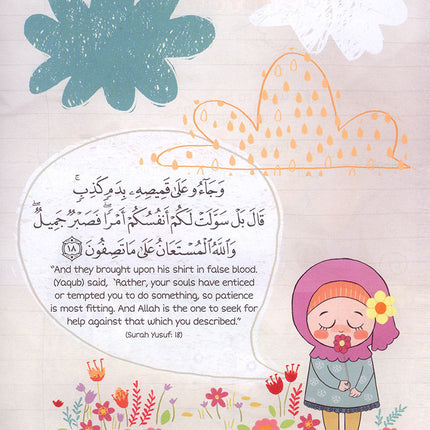 وَجَآءُو عَلَىٰ قَمِيصِهِۦ بِدَمٍ كَذِبٍ ۚ
قَالَ بَلْ سَوَّلَتْ لَكُمْ أَنفُسُكُمْ أَمْرًا ۖ فَصَبْرٌ جَمِيلٌ ۖ
وَٱللَّهُ ٱلْمُسْتَعَانُ عَلَىٰ مَا تَصِفُونَ ۝١٨
“And they brought upon his shirt in false blood.
(Yaqub) said, ‘Rather, your souls have enticed
or tempted you to do something, so patience
is most fitting. And Allah is the one to seek for
help against that which you described.”
(Surah Yusuf: 18)